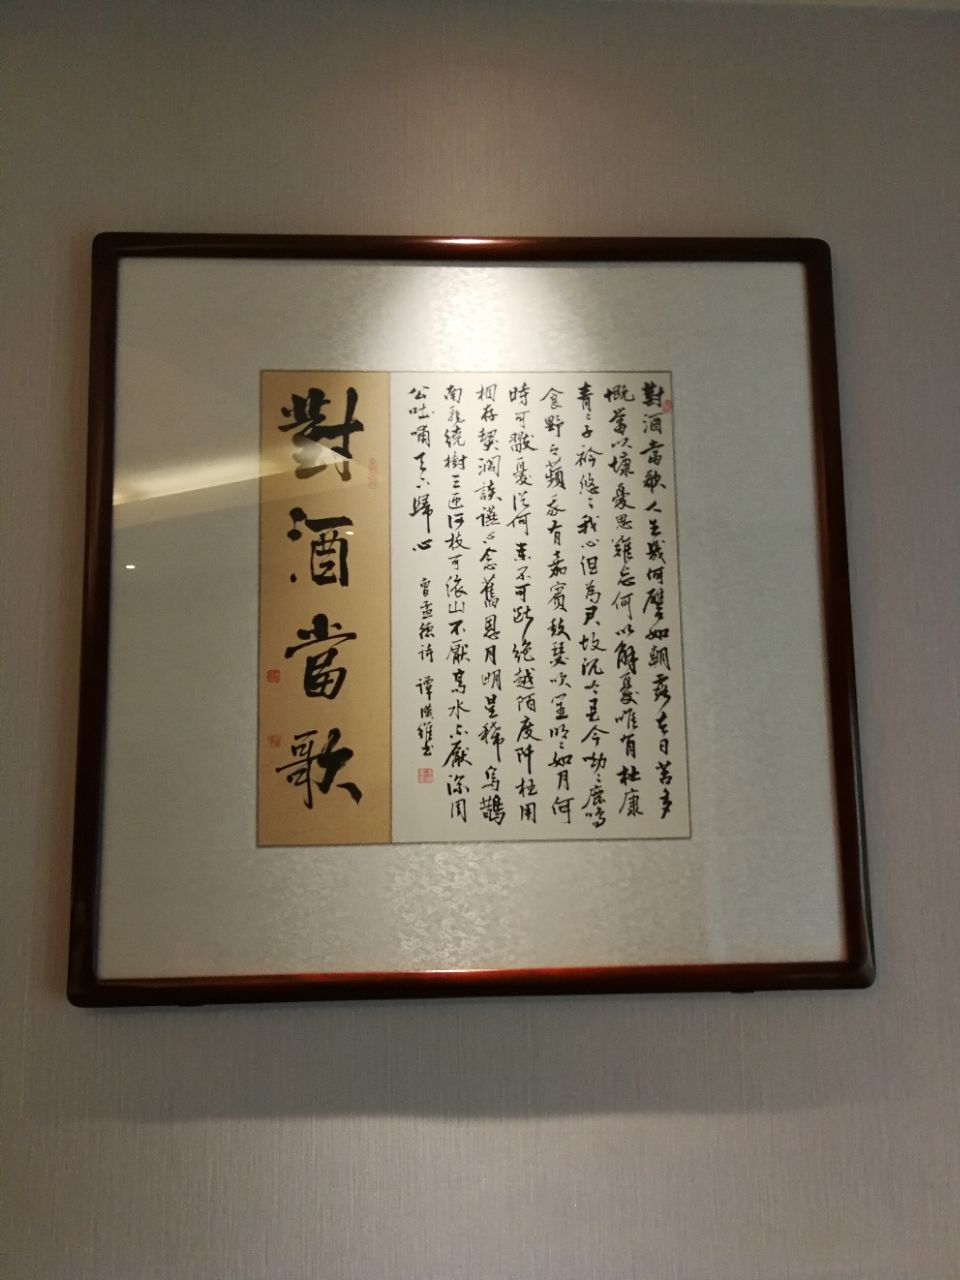 對酒當歌人生幾何譬如朝露去日苦多
慨當以慷憂思難忘何以解憂唯有杜康
青々子衿悠々我心但為君故沉吟至今呦々鹿鳴
食野之蘋我有嘉賓鼓瑟吹笙明々如月何
時可掇憂從何來不可斷絕越陌度阡枉用
相存契闊談讌心念舊恩月明星稀烏鵲
南飛繞樹三匝何枝可依山不厭高水不厭深周
公吐哺天下歸心 曹孟德詩 譚
對酒當歌